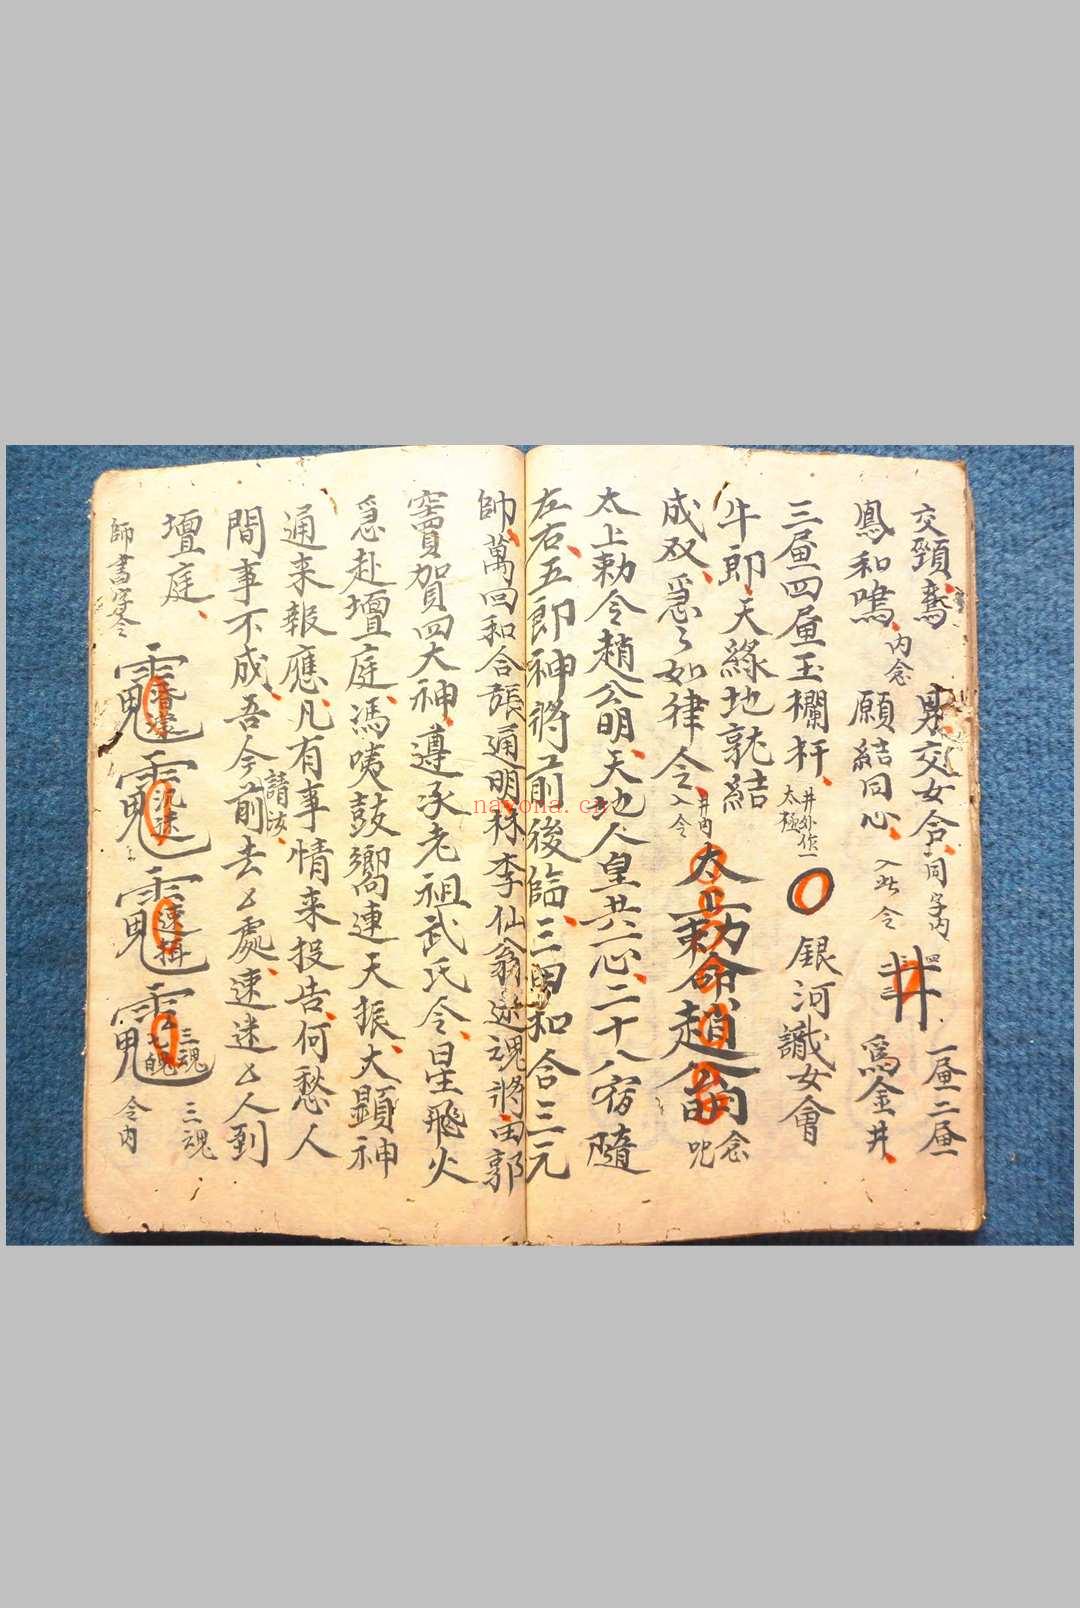 交頸鸞 男交女合 同字内
鳳和鳴 内念 願結同心 入此令
井 一㞐二㞐
為金井
三㞐四㞐玉欄杆 井外作一太極
銀河識女會
牛郎天緣地就結
成双急々如律令 井内入令
太上勅命趙公明 念咒
太上勅令趙公明天地人皇共一心二十八宿隨
左右五郎神將前後臨三田和合三元
帥萬回和合張通明林李仙翁逊魂將田郭
竇賀四大神遵承老祖武氏令星飛火
急赴壇庭馮咦鼓嚮連天振大顯神
通来報應凡有事情来投告何愁人
間事不成吾今請法前去厶處速速厶人到
壇庭
師書字令
昏迷
沉迷
速攝
三魂七魄
三魂
令内
nayona.cn